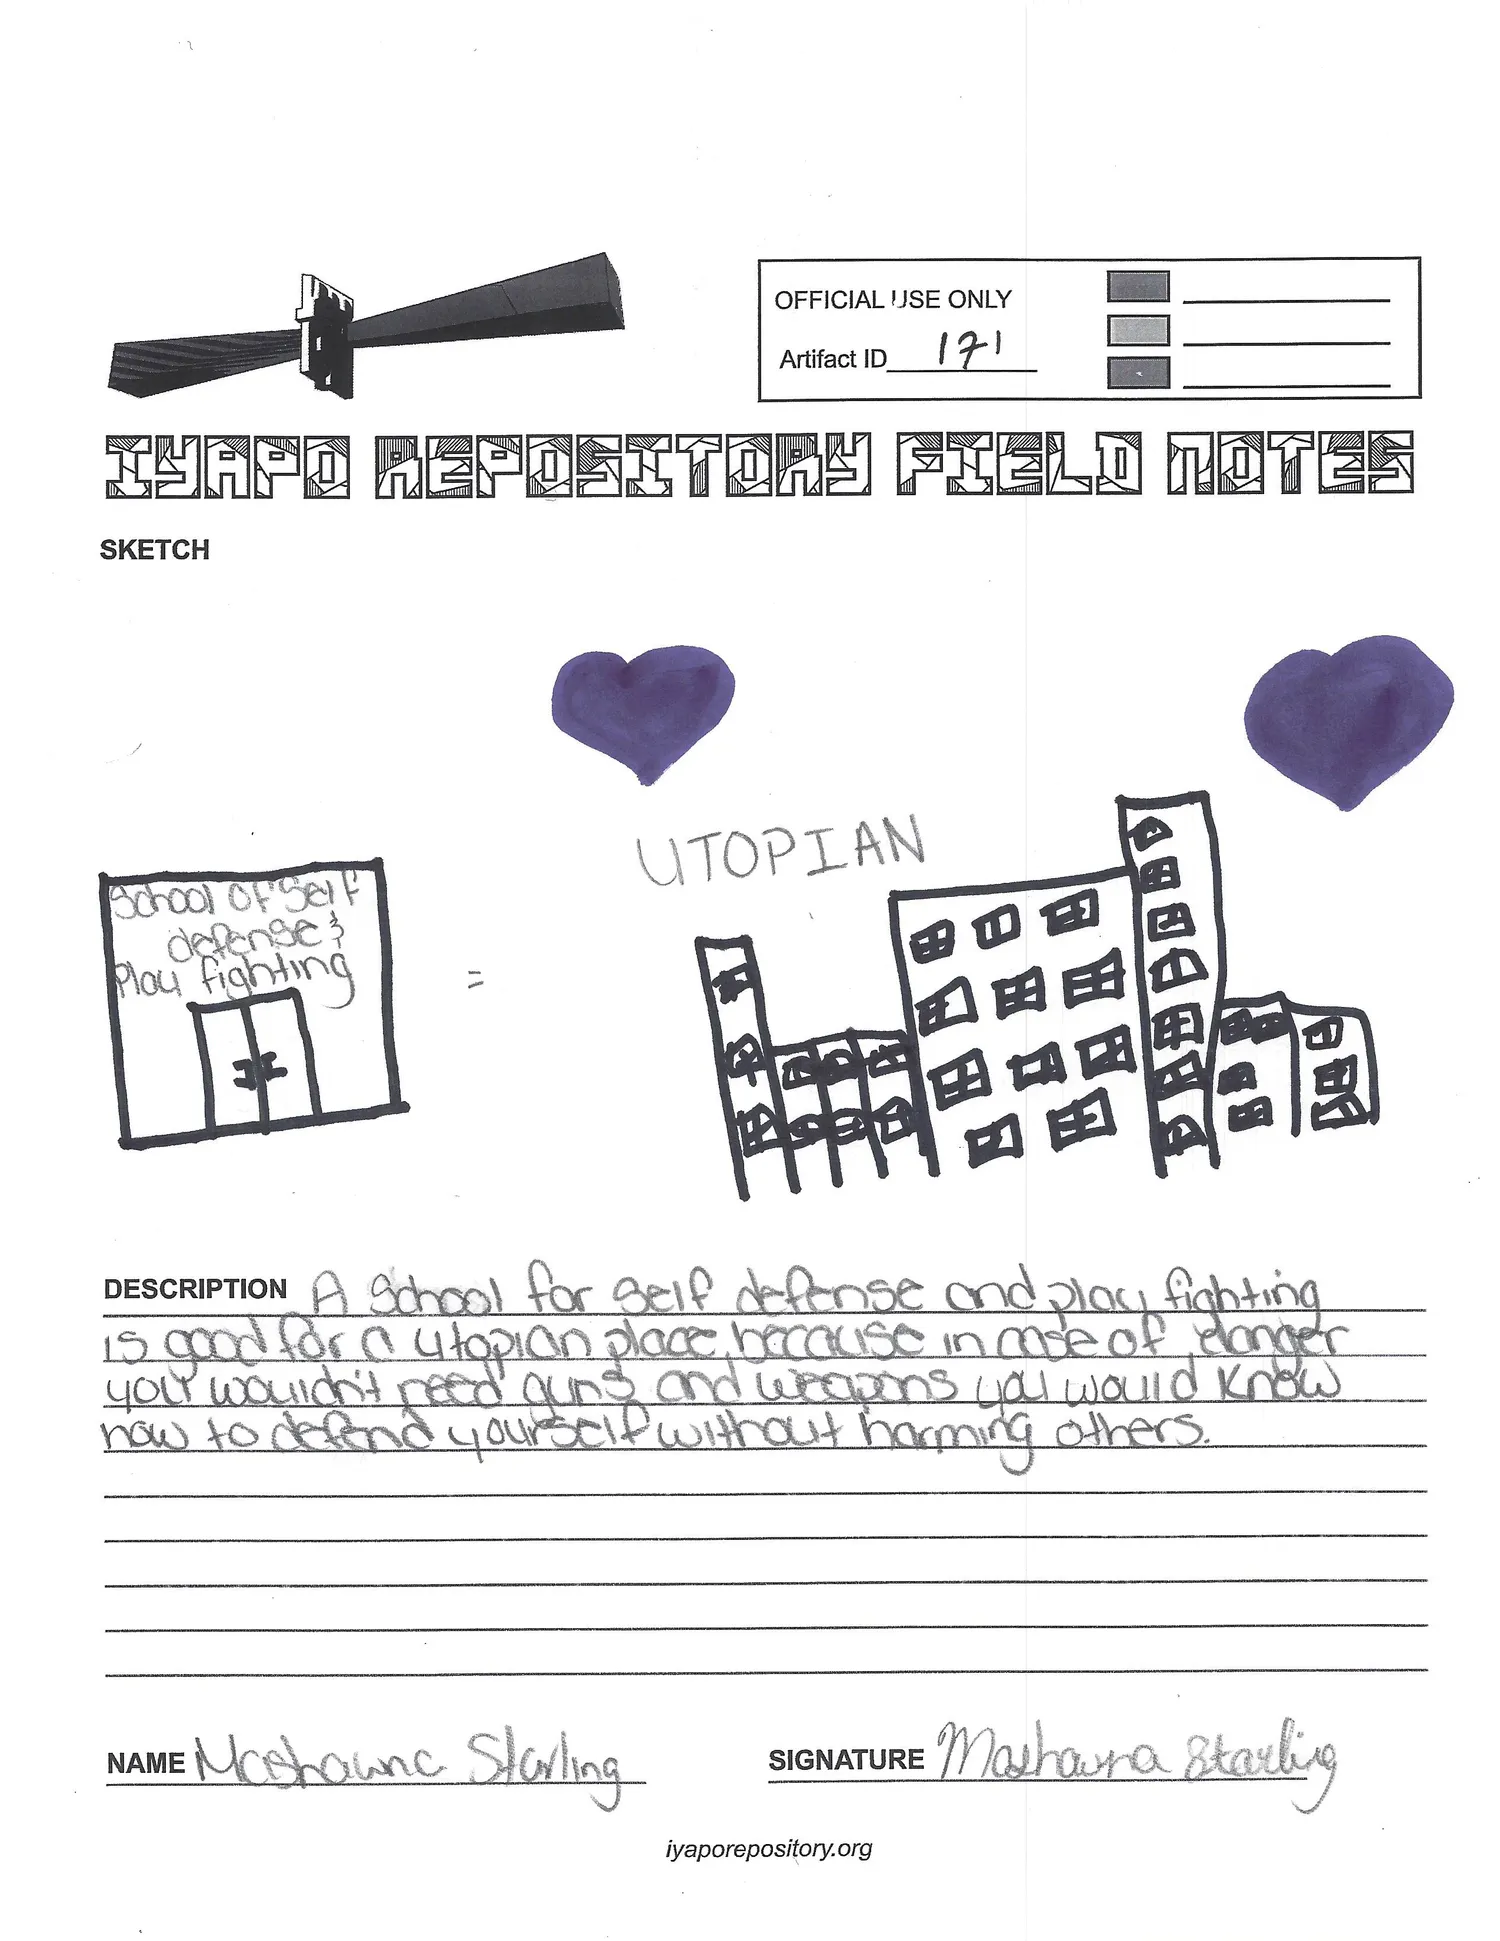 OFFICIAL USE ONLY
Artifact ID 171
IYAPO REPOSITORY FIELD NOTES
SKETCH
UTOPIAN
School of Self
defense &
Play fighting
=
DESCRIPTION A School for Self defense and play fighting
is good for a utopian place, because in case of danger
you wouldn't need guns and weapons you would know
how to defend yourself without harming others.
NAME Mashawna Starling
SIGNATURE Mashawna Starling
iyaporepository.org